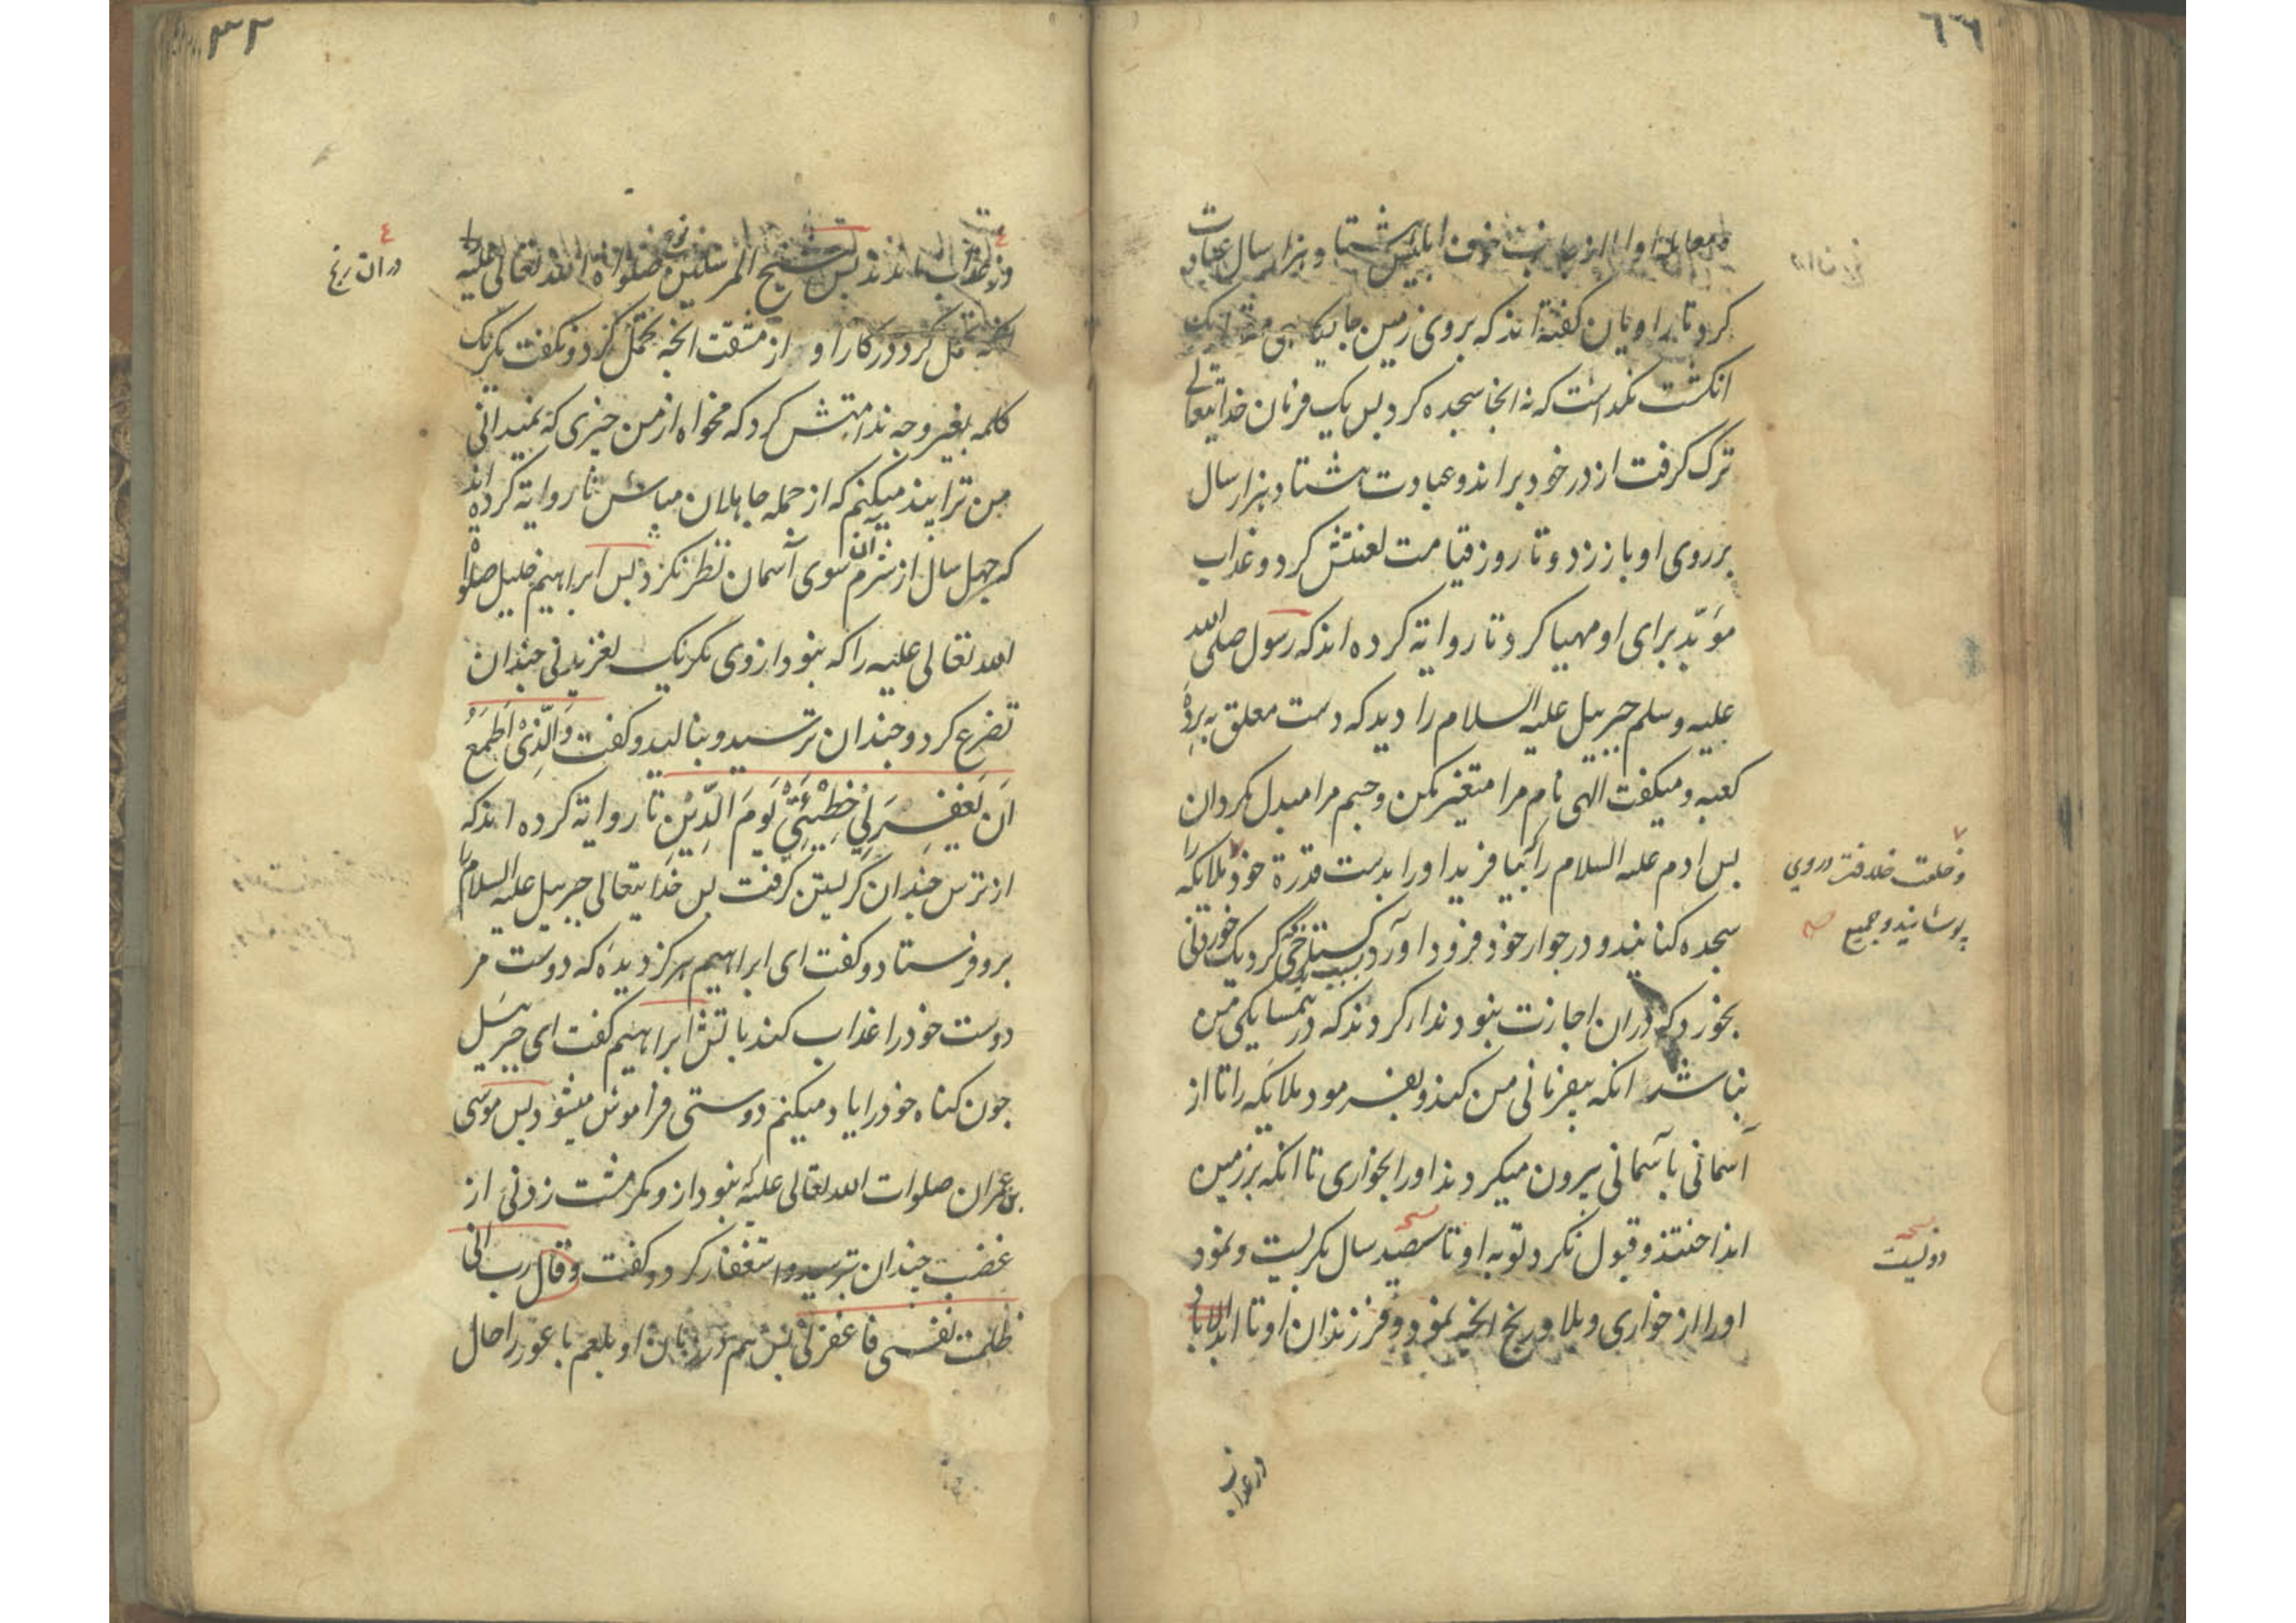 ابلیس هشتاد هزار سال عبادت
کرد تا راویان گفته اند که بروی زمین جایگاهی
انکشت نکذاشت که نه انجا سجده کرد پس یک فرمان خدایتعالی
ترک گرفت از در خود براند و عبادت هشتاد هزار سال
بر روی او باز زد و تا روز قیامت لعنتش کرد و عذاب
مؤبّد برای او مهیا کرد تا روایة کرده اند که رسول صلی الله
علیه وسلم جبریل علیه السلام را دید که دست معلق به پرده
کعبه و میکفت الهی نام مرا متغیر مکن و جسم مرا مبدل مکردان
پس ادم علیه السلام را بیافرید او را بدست قدرة خود ملایکه را
سجده کنانید و در جوار خود فرود اورد کستاخی کرد یک خوردنی
بخورد که دران اجازت نبود ندا کردند که در همسایکی من
نباشد انکه بیفرمانی من کند و بفرمود ملایکه را تا از
آسمانی بآسمانی بیرون میکردند او را بخواری تا انکه بر زمین
انداختند و قبول نکرد توبه او تا سصید سال بکریست و نمود
او را از خواری و بلا و رنج انچه نمود و فرزندان او تا ابد الاباد
و خلعت خلافت در وی
پوشانید و جمیع صح
دویست
در عذاب
۳۲
در عذاب اندند پس شیخ المرسلین نوح صلوات الله تعالی علیه
کرد در کار او از مشقت انچه تحمل کرد و نکفت مکر یک
کلمه بغیر وجه ندامتش کرد که مخواه از من چیزی که نمیدانی
من ترا پند میکنم که از جمله جاهلان مباش تا روایة کرده اند
که چهل سال از شرم آن سوی آسمان نظر نکرد پس ابراهیم خلیل صلواة
الله تعالی علیه را که نبود از وی مکر یک لغزیدنی چندان
تضرع کرد و چندان ترسید و بنالید و کفت وَالَّذِیْ اَطْمَعُ
اَن یَغْفِرَ لِیْ خَطِیْئَتِیْ یَوْمَ الدِّیْنِ تا روایة کرده اند که
از ترس چندان کریستن کرفت پس خدایتعالی جبریل علیه السلام را
برو فرستاد و کفت ای ابراهیم هرکز دیدۀ که دوست مر
دوست خود را عذاب کند باتش ابراهیم کفت ای جبریل
چون کناه خود را یاد میکنم دوستی فراموش میشود پس موسی
بن عمران صلوات الله تعالی علیه که نبود از و مکر مشت زدنی از
غضب چندان بترسید و استغفار کرد و کفت وقال رب انی
ظلمت نفسی فاغفرلی پس هم در زمان او بلعم باعور را حال
در ان رنج